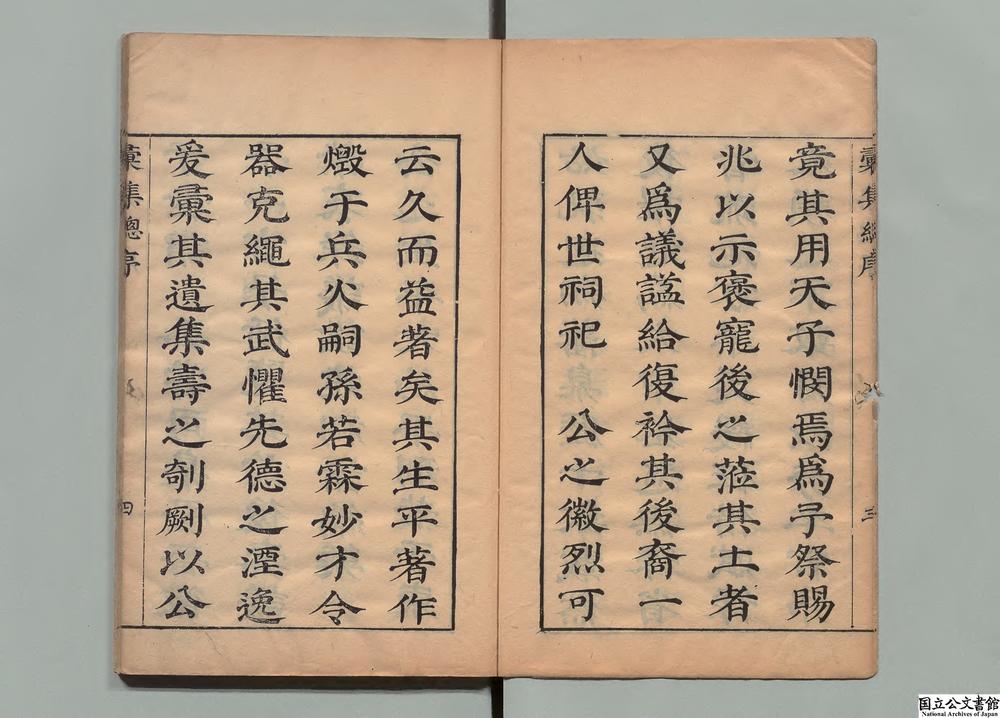 彚集總序
三
竟其用天子憫焉爲予祭賜
兆以示褒寵後之蒞其土者
又爲議謚給復衿其後裔一
人俾世祠祀 公之徽烈可
云久而益著矣其生平著作
燬于兵火嗣孫若霖妙才令
器克繩其武懼先德之湮逸
爰彚其遺集壽之剞劂以公
彚集總序
四
国立公文書館
National Archives of Japan